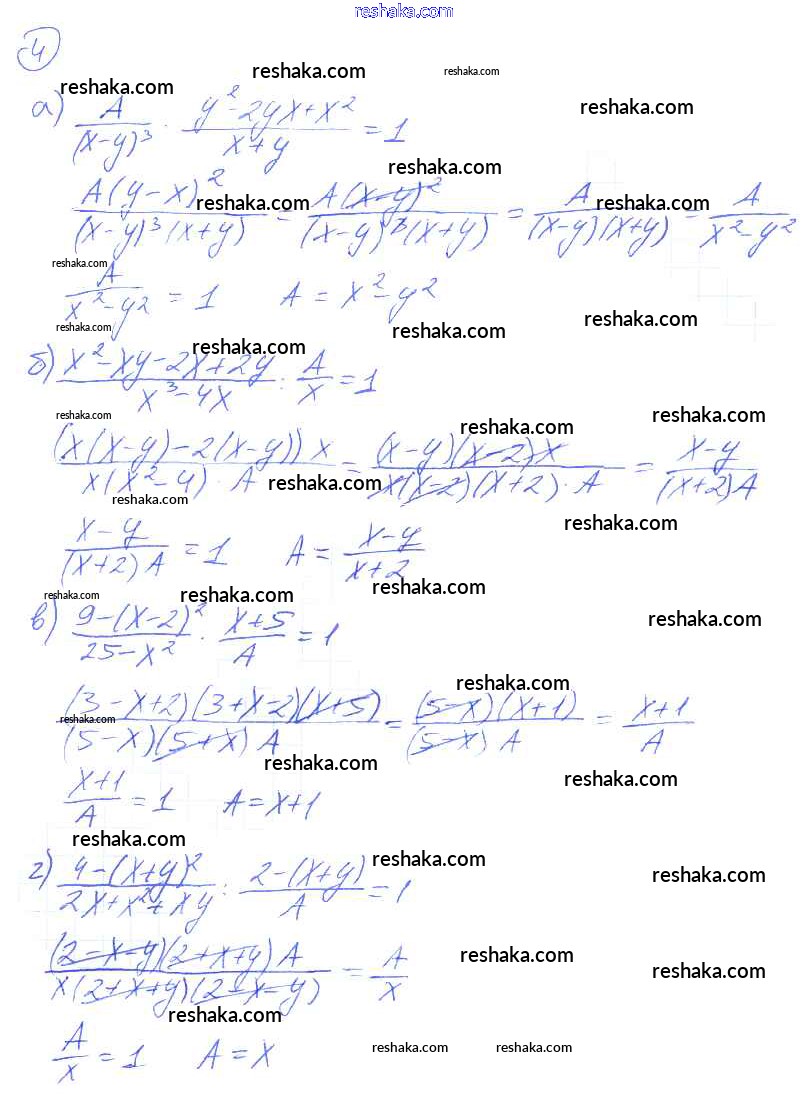 reshaka.com
4
reshaka.com reshaka.com reshaka.com
а) A/(x-y)³ · (y²-2yx+x²)/(x+y) = 1 reshaka.com
reshaka.com
A(y-x)²/((x-y)³(x+y)) = A(x-y)²/((x-y)³(x+y)) = A/((x-y)(x+y)) = A/(x²-y²)
reshaka.com reshaka.com
reshaka.com
A/(x²-y²) = 1 A = x²-y²
reshaka.com reshaka.com reshaka.com
reshaka.com
б) (x²-xy-2x+2y)/(x³-4x) : A/x = 1
reshaka.com reshaka.com reshaka.com
(x(x-y)-2(x-y))x/(x(x²-4)·A) = (x-y)(x-2)x/(x(x-2)(x+2)·A) = (x-y)/((x+2)A)
reshaka.com reshaka.com
reshaka.com
(x-y)/((x+2)A) = 1 A = (x-y)/(x+2)
reshaka.com reshaka.com reshaka.com
в) (9-(x-2)²)/(25-x²) · (x+5)/A = 1 reshaka.com
reshaka.com
(3-x+2)(3+x-2)(x+5)/((5-x)(5+x)A) = (5-x)(x+1)/((5-x)A) = (x+1)/A
reshaka.com reshaka.com
(x+1)/A = 1 A = x+1 reshaka.com
reshaka.com reshaka.com
г) (4-(x+y)²)/(2x+x²+xy) : (2-(x+y))/A = 1 reshaka.com
(2-x-y)(2+x+y)A/(x(2+x+y)(2-x-y)) = A/x
reshaka.com reshaka.com
reshaka.com
A/x = 1 A = x
reshaka.com reshaka.com